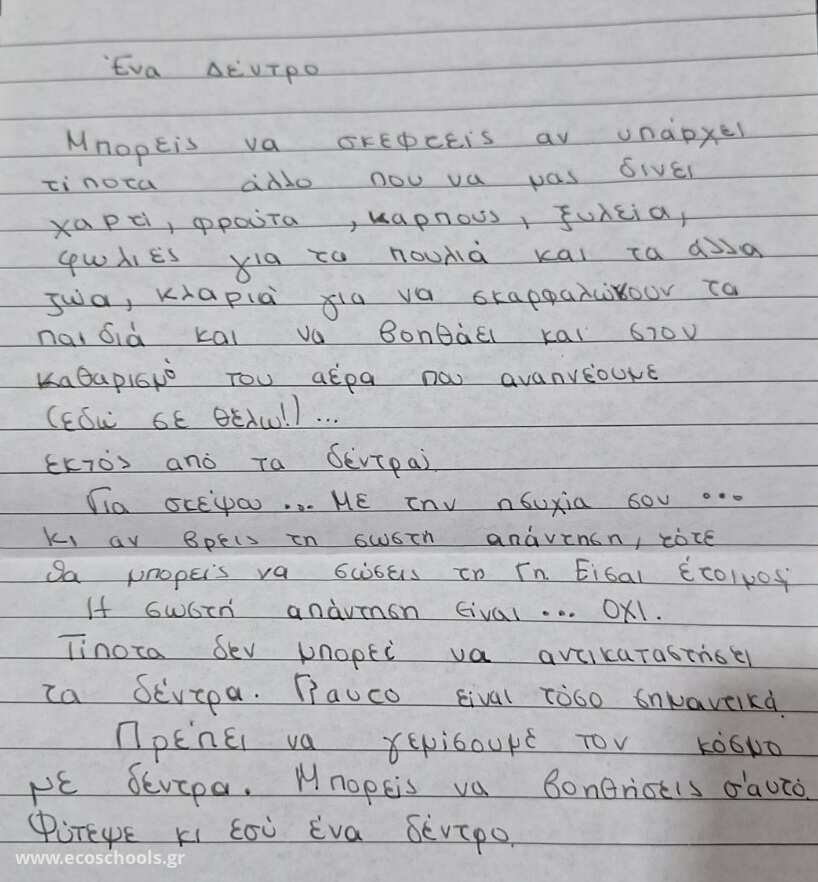 Ένα Δέντρο
Μπορείς να σκεφτείς αν υπάρχει
τίποτα άλλο που να μας δινει
χαρτί, φρούτα, καρπους, ξυλεία,
φωλιές για τα πουλιά και τα άλλα
ζώα, κλαριά για να σκαρφαλώνουν τα
παιδιά και να βοηθάει και στον
καθαρισμό του αέρα που αναπνέουμε
(εδώ σε θέλω!)...
εκτός από τα δέντρα;
Για σκέψου ... Με την ησυχία σου ...
κι αν βρεις τη σωστη απάντηση, τότε
θα μπορείς να σώσεις τη Γη. Είσαι έτοιμος;
Η σωστή απάντηση είναι ... ΟΧΙ.
Τίποτα δεν μπορεί να αντικαταστήσει
τα δέντρα. Γι αυτο είναι τόσο σημαντικά.
Πρέπει να γεμίσουμε τον κόσμο
με δέντρα. Μπορείς να βοηθήσεις σ'αυτό.
Φύτεψε κι εσύ ένα δέντρο.
www.ecoschools.gr